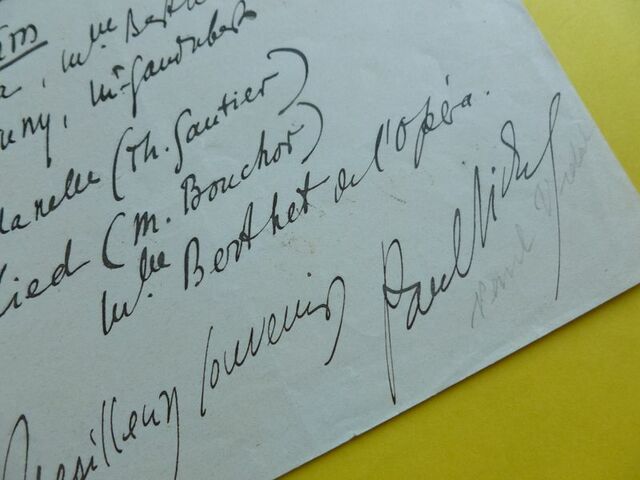 , Mme Berth
, Mr Gandubert
(Th. Gautier)
Lied (M. Bouchor)
Mme Berthet de l'Opéra.
meilleur souvenir
Paul Vidal
Paul Vidal